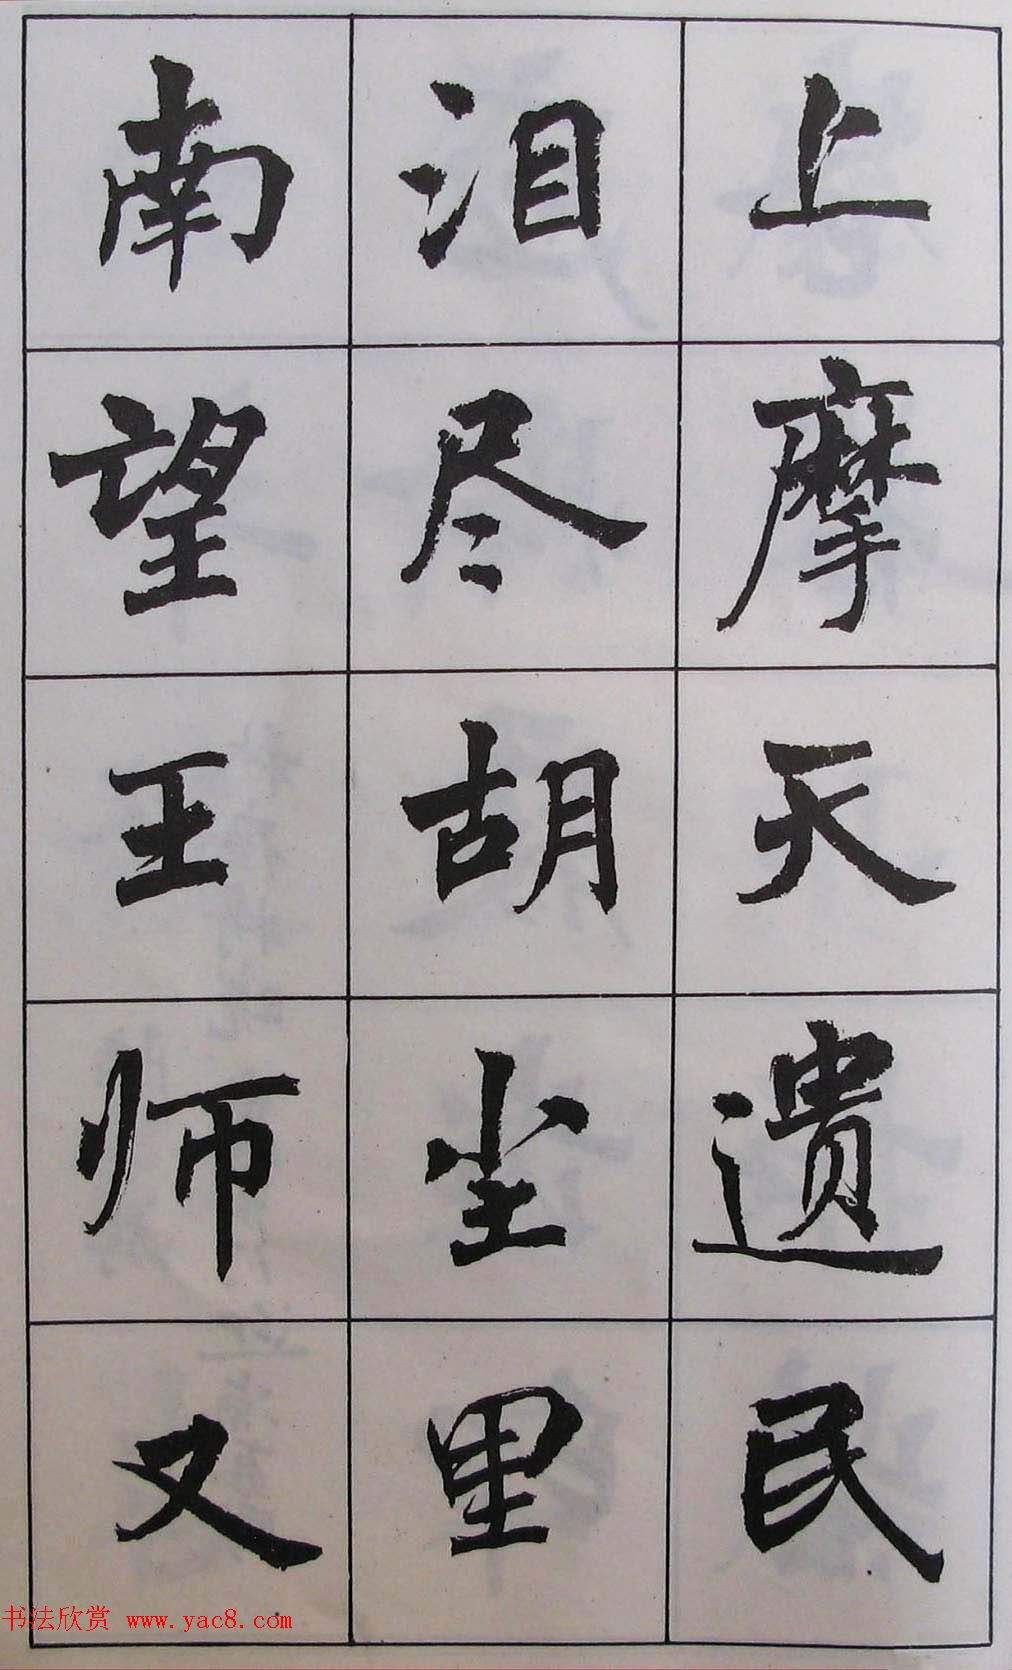 上摩天遗民
泪尽胡尘里
南望王师又
书法欣赏 www.yac8.com